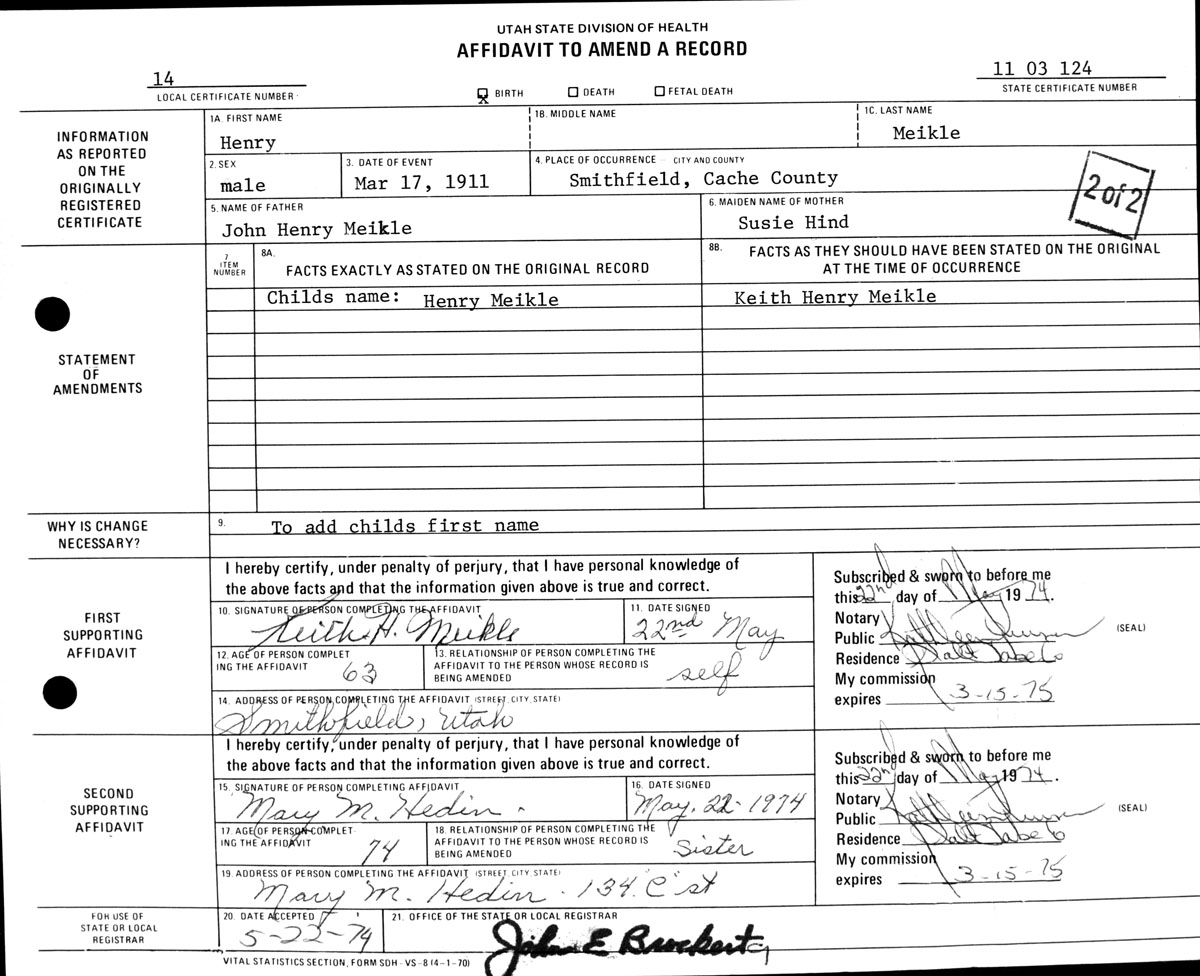 UTAH STATE DIVISION OF HEALTH
AFFIDAVIT TO AMEND A RECORD
14
LOCAL CERTIFICATE NUMBER
X BIRTH ☐ DEATH ☐ FETAL DEATH
11 03 124
STATE CERTIFICATE NUMBER
INFORMATION AS REPORTED ON THE ORIGINALLY REGISTERED CERTIFICATE
1A FIRST NAME
Henry
1B. MIDDLE NAME
1C. LAST NAME
Meikle
2. SEX
male
3. DATE OF EVENT
Mar 17, 1911
4. PLACE OF OCCURRENCE - CITY AND COUNTY
Smithfield, Cache County
2 of 2
5. NAME OF FATHER
John Henry Meikle
6. MAIDEN NAME OF MOTHER
Susie Hind
STATEMENT OF AMENDMENTS
7 ITEM NUMBER
8A.
FACTS EXACTLY AS STATED ON THE ORIGINAL RECORD
8B. FACTS AS THEY SHOULD HAVE BEEN STATED ON THE ORIGINAL
AT THE TIME OF OCCURRENCE
Childs name: Henry Meikle
Keith Henry Meikle
WHY IS CHANGE NECESSARY?
9. To add childs first name
FIRST SUPPORTING AFFIDAVIT
I hereby certify, under penalty of perjury, that I have personal knowledge of
the above facts and that the information given above is true and correct.
10. SIGNATURE OF PERSON COMPLETING THE AFFIDAVIT
Keith H. Meikle
11. DATE SIGNED
22nd May
12. AGE OF PERSON COMPLET
ING THE AFFIDAVIT 63
13. RELATIONSHIP OF PERSON COMPLETING THE
AFFIDAVIT TO THE PERSON WHOSE RECORD IS
BEING AMENDED self
14. ADDRESS OF PERSON COMPLETING THE AFFIDAVIT (STREET, CITY, STATE)
Smithfield, Utah
Subscribed & sworn to before me
this 22nd day of May 1974.
Notary
Public Kathleen
Residence Salt Lake Co
My commission
expires 3-15-75
(SEAL)
SECOND SUPPORTING AFFIDAVIT
I hereby certify, under penalty of perjury, that I have personal knowledge of
the above facts and that the information given above is true and correct.
15. SIGNATURE OF PERSON COMPLETING AFFIDAVIT
Mary M. Hedin.
16. DATE SIGNED
May. 22-1974
17. AGE OF PERSON COMPLET
ING THE AFFIDAVIT 74
18. RELATIONSHIP OF PERSON COMPLETING THE
AFFIDAVIT TO THE PERSON WHOSE RECORD IS
BEING AMENDED Sister
19. ADDRESS OF PERSON COMPLETING THE AFFIDAVIT (STREET, CITY, STATE)
Mary M. Hedin. 134 "C" st
Subscribed & sworn to before me
this 22nd day of May 1974.
Notary
Public Kathleen
Residence Salt Lake Co
My commission
expires 3-15-75
(SEAL)
FOR USE OF STATE OR LOCAL REGISTRAR
20. DATE ACCEPTED
5-22-74
21. OFFICE OF THE STATE OR LOCAL REGISTRAR
John E Brockert
VITAL STATISTICS SECTION, FORM SDH-VS-8 (4-1-70)